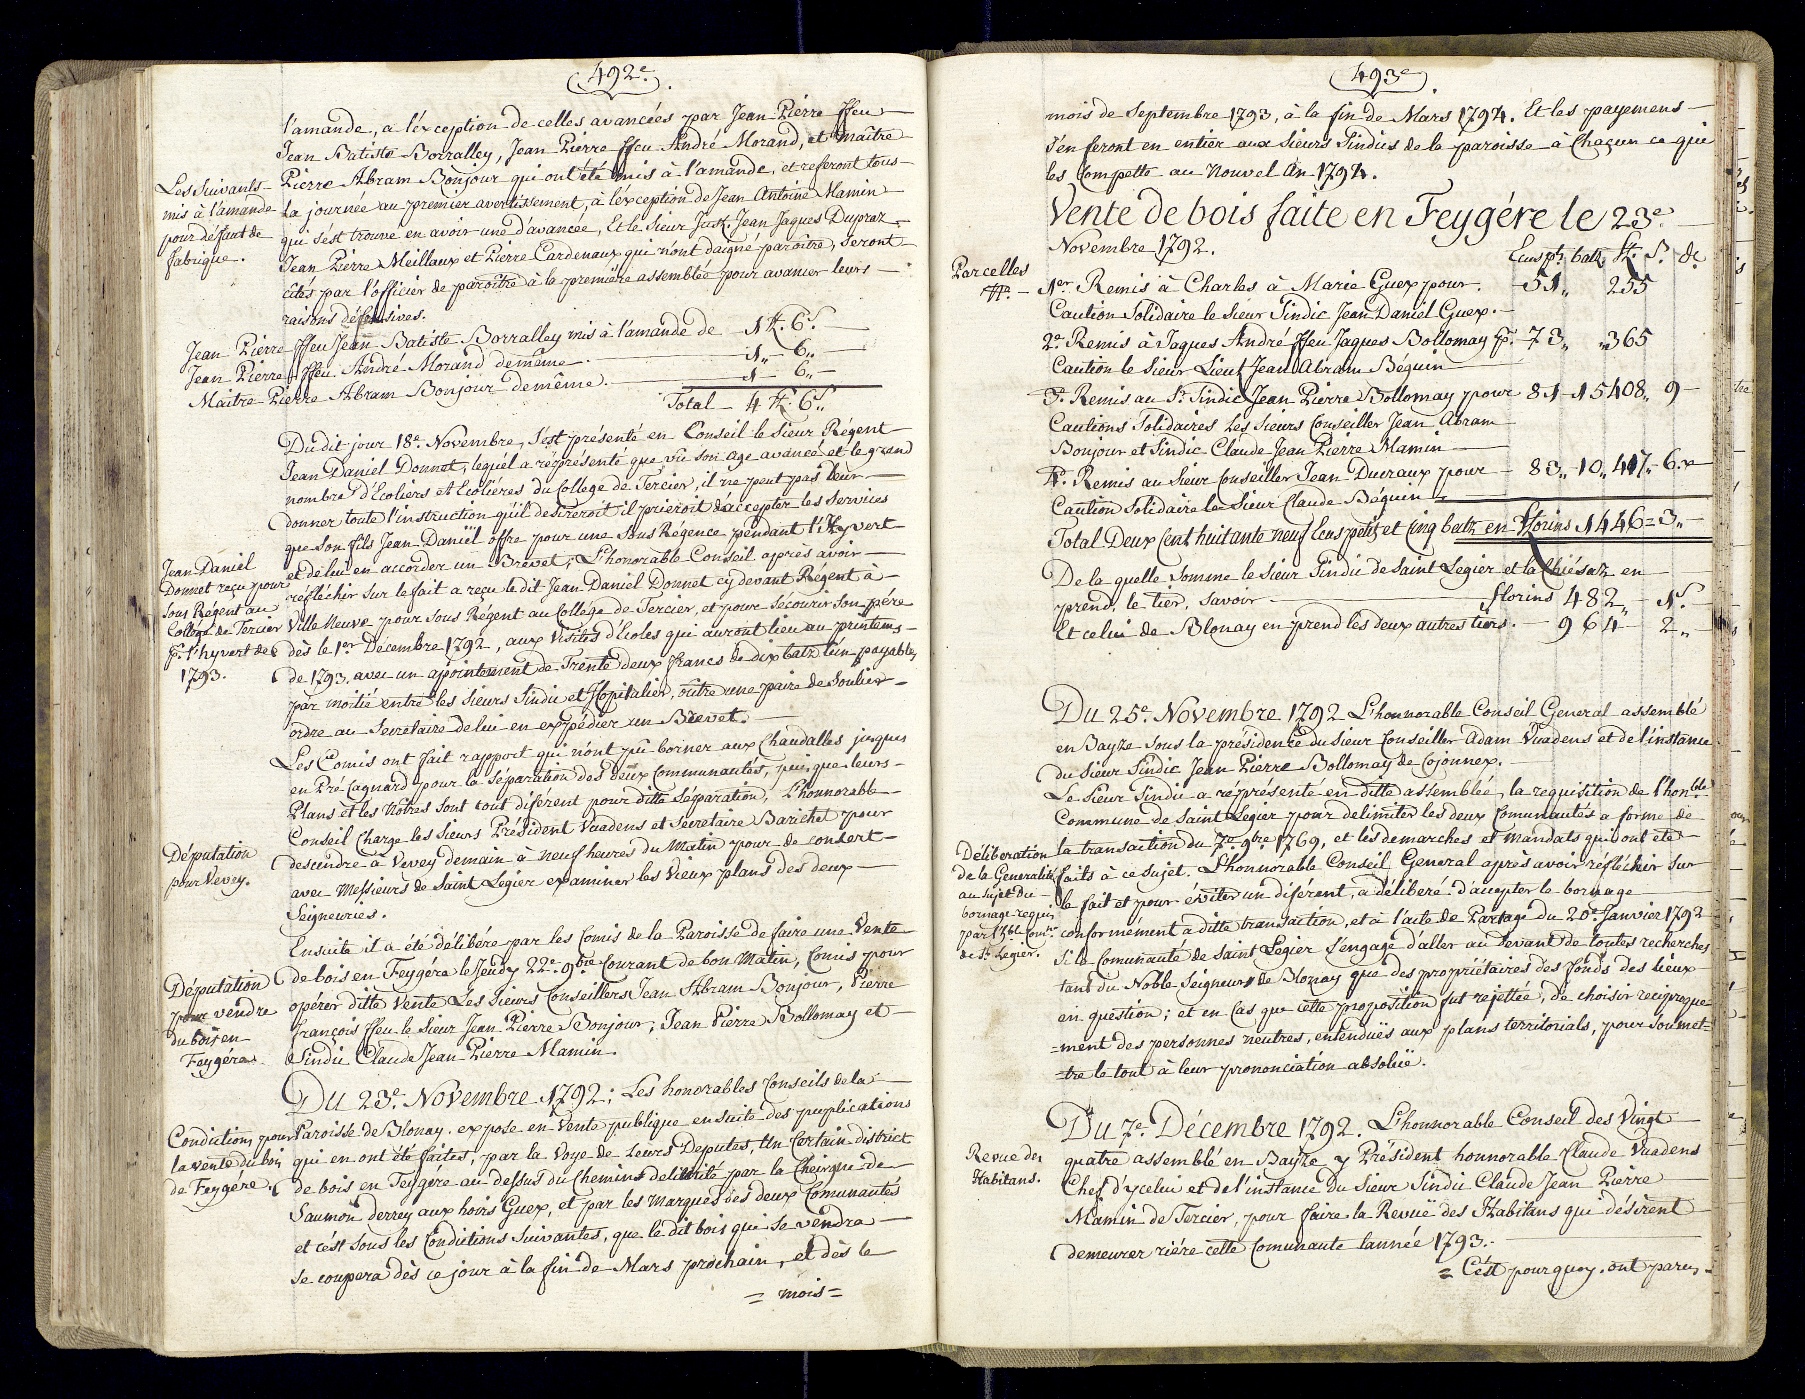 492e.
l'amande, a l'éxception de celles avancées par Jean Piérre ffeu
Jean Batiste Borralley, Jean Pierre ffeu André Morand, et maître
Pierre Abram Bonjour qui ont été mis à l'amande, et referont tous
Les Suivants
mis à l'amande
pour deffaut de
fabrique.
la journée au premier avertissement, à l'exception de Jean Antoine Mamin
qui s'est trouvé en avoir une d'avancée, Et le Sieur Just. Jean Jaques Dupraz
Jean Piérre Meillaux et Piérre Cardenaux qui n'ont daigné paroitre, seront
cités par l'officier de paroître à la première assemblée pour avancer leurs
raisons défensives.
Jean Pierre ffeu Jean Batiste Borralley mis à l'amande de 1 ft. 6 s.
Jean Pierre ffeu André Morand de même. 1 „ 6 „
Maitre Pierre Abram Bonjour de même. 1 6 „
Total 4 ft. 6 s.
Du dit jour 18e. Novembre, s'est présenté en Conseil le Sieur Régent
Jean Daniel Donnet, lequel a répresénté que vû son age avancé et le grand
nombre d'Ecoliers et Ecoliéres du College de Tercier, il ne peut pas leur
donner toute l'instruction qu'il desireroit il prieroit d'accepter les services
que son fils Jean Daniel offre pour une Sous Régence pendant l'Hyvert
et de lui en accorder un Brevet; L'honorable Conseil après avoir
Jean Daniel
Donnet reçu pour
sous Régent au
College de Tercier
pr. l'hyvert de
1793.
réfléchir sur le fait a reçu le dit Jean Daniel Donnet cy devant Régent à
Ville Neuve pour sous Régent au Collége de Tercier, et pour sécourir son pére
dès le 1er Décembre 1792, aux Visites d'Ecoles qui auront lieu au printems
de 1793. avec un apointement de Trente deux francs de dix batz l'un payables
par moitié entre les Sieurs Sindic et Hopitalier, oûtre une paire de Soulier
ordre au Secretaire de lui en expédier un Brevet.
Les Comis ont fait rapport qui n'ont pû borner aux Chaudalles jusques
en Pré Cagnard pour la séparation des deux Communautés, puis que leurs
Plans et les nôtres sont tout diférent pour ditte Séparation, L'honnorable
Conseil Charge les Sieurs Président Vuadens et Secretaire Barichet pour
Députation
pour Vevey.
descendre à Vevey demain à neuf heures du Matin pour de concert
avec Messieurs de Saint Legier examiner les Vieux plans des deux
Seigneuries.
Ensuite il a été délibére par les Comis de la Paroisse de faire une Vente
de bois en Feygére le Jeudy 22e. 9bre Courant de bon Matin, Comis pour
Députation
pour vendre
du bois en
Feygére.
opérer ditte Vente Les Sieurs Conseillers Jean Abram Bonjour, Pierre
françois ffeu le Sieur Jean Pierre Bonjour; Jean Pierre Bollomay et
Sindic Claude Jean Pierre Mamin.
Du 23e. Novembre 1792; Les honorables Conseils de la
Conditions pour
la vente du bois
de Feygére.
Paroisse de Blonay. expose en Vente publique ensuite des puplications
qui en ont été faites, par la Voye de Leurs Deputés, Un Certain district
de bois en Feygére au dessus du Chemins delimité par la Cheirgne de
Saumon derrey aux hoirs Guex, et par les Marques des deux Comunautés
et c'est sous les Conditions Suivantes, que le dit bois qui se vendra
se coupera dès ce jour à la fin de Mars prochain, et dès le
= mois =
493e
mois de Septembre 1793, à la fin de Mars 1794. Et les payemens
s'en feront en entier aux Sieurs Sindics de la paroisse à Chacun ce qui
les Compette au Nouvel An 1794.
Vente de bois faite en Feygére le 23e.
Novembre 1792.
Ecus pts. batz ft. S. d.
Parcelles
1er Remis à Charles à Marie Guex pour. 51 „ 255
Caution Solidaire le Sieur Sindic Jean Daniel Guex.
2e. Remis à Jaques André ffeu Jaques Bollomay pr. 73 „ „ 365
Caution le Sieur Lieut Jean Abram Béguin
3e. Remis au Sr. Sindic Jean Pierre Bollomay pour 81 15 408 „ 9
Cautions Solidaires Les Sieurs Conseiller Jean Abram
Bonjour et Sindic Claude Jean Pierre Mamin
4e. Remis au Sieur Conseiller Jean Ducraux pour 83 „ 10 „ 417 „ 6 „
Caution Solidaire le Sieur Claude Béguin
Total Deux Cent huitante neuf Ecus petits et Cinq batz en florins 1446 = 3 „
De la quelle Somme le Sieur Sindic de Saint Legier et la Chiésaz en
prend, le tier, savoir florins 482 „ 1 s.
Et celui de Blonay en prend les deux autres tiers. 964 2 „
Du 25e. Novembre 1792 L'honnorable Conseil General assemblé
en Bayze sous la présidence du Sieur Conseiller Adam Vuadens et de l'instance
du Sieur Sindic Jean Pierre Bollomay de Cojonnex.
Le Sieur Sindic a représenté en ditte assemblée, la requisition de l'honble
Commune de Saint Legier pour delimiter les deux Comunautés a forme de
Déliberation
de la Generalité
au Sujet du
bornage requis
par l'hble Comte
de St. Legier.
la transaction du 7e. 9bre 1769, et les demarches et mandats qui ont été
faits à ce sujet. L'honnorable Conseil General après avoir réfléchir sur
le fait et pour éviter un diférent, a délibéré d'accepter le bornage
conformément a ditte transaction, et à l'acte de Partage du 20e. Janvier 1792
Si la Comunauté de Saint Legier s'engage d'aller au devant de toutes recherches
tant du Noble Seigneur de Blonay que des propriétaires des fonds des lieux
en question; et en Cas que cette proposition fut rejettée, de choisir reciproque
=ment des personnes neutres, entenduës aux plans territorials, pour soumet=
=tre le tout à leur prononciation absoluë.
Du 7e. Décembre 1792. L'honnorable Conseil des Vingt
Revue des
Habitans.
quatre assemblé en Bayze y Président honnorable Claude Vuadens
Chef d'ycelui et de l'instance du Sieur Sindic Claude Jean Pierre
Mamin de Tercier, pour faire la Revuë des Habitans qui désirent
demeurer riére cette Comunauté l'année 1793.
= C'est pourquoy. ont parus =